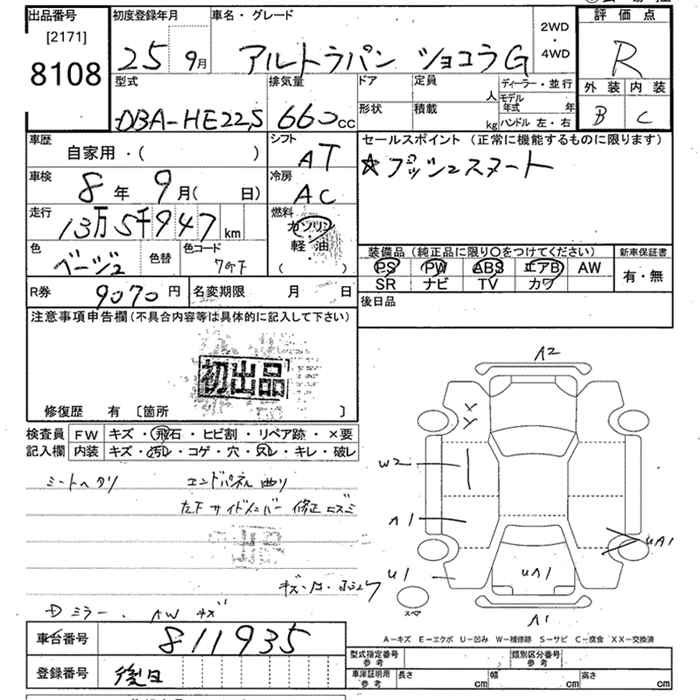 出品番号 初度登録年月 車名・グレード 2WD・4WD 評価点
[2171]
8108 25 9月 アルトラパン ショコラG R
型式 排気量 ドア 定員 人 ディーラー・並行 外装 内装
DBA-HE22S 660cc 形状 積載 kg モデル年式 年 ハンドル 左・右 B C
車歴 自家用・( ) シフト AT セールスポイント (正常に機能するものに限ります)
☆プッシュスタート
車検 8年 9月( 日) 冷房 AC
走行 13万5千947km 燃料 ガソリン・軽油 ( )
色 ベージュ 色替 色コード 装備品 (純正品に限り〇をつけてください) 新車保証書
PS PW ABS エアB AW 有・無
SR ナビ TV カワ
R券 9070円 名変期限 月 日 後日品
注意事項申告欄(不具合内容等は具体的に記入して下さい)
初出品
修復歴 有 [箇所 ]
検査員記入欄 FW キズ・飛石・ヒビ割・リペア跡・×要
内装 キズ・汚レ・コゲ・穴・スレ・キレ・破レ
シートヘタリ エンドパネル曲り
左下サイドメンバー 修正 ヒズミ
Dミラー、AWキズ
A2
W2
A1
UA1
U1
UA1
スペア
A1
A-キズ E-エクボ U-凹み W-補修跡 S-サビ C-腐食 XX-交換済
車台番号 811935
登録番号 後日
型式指定番号 参考 類別区分番号 参考
車庫証明用 参考 長さ cm 幅 cm 高さ cm